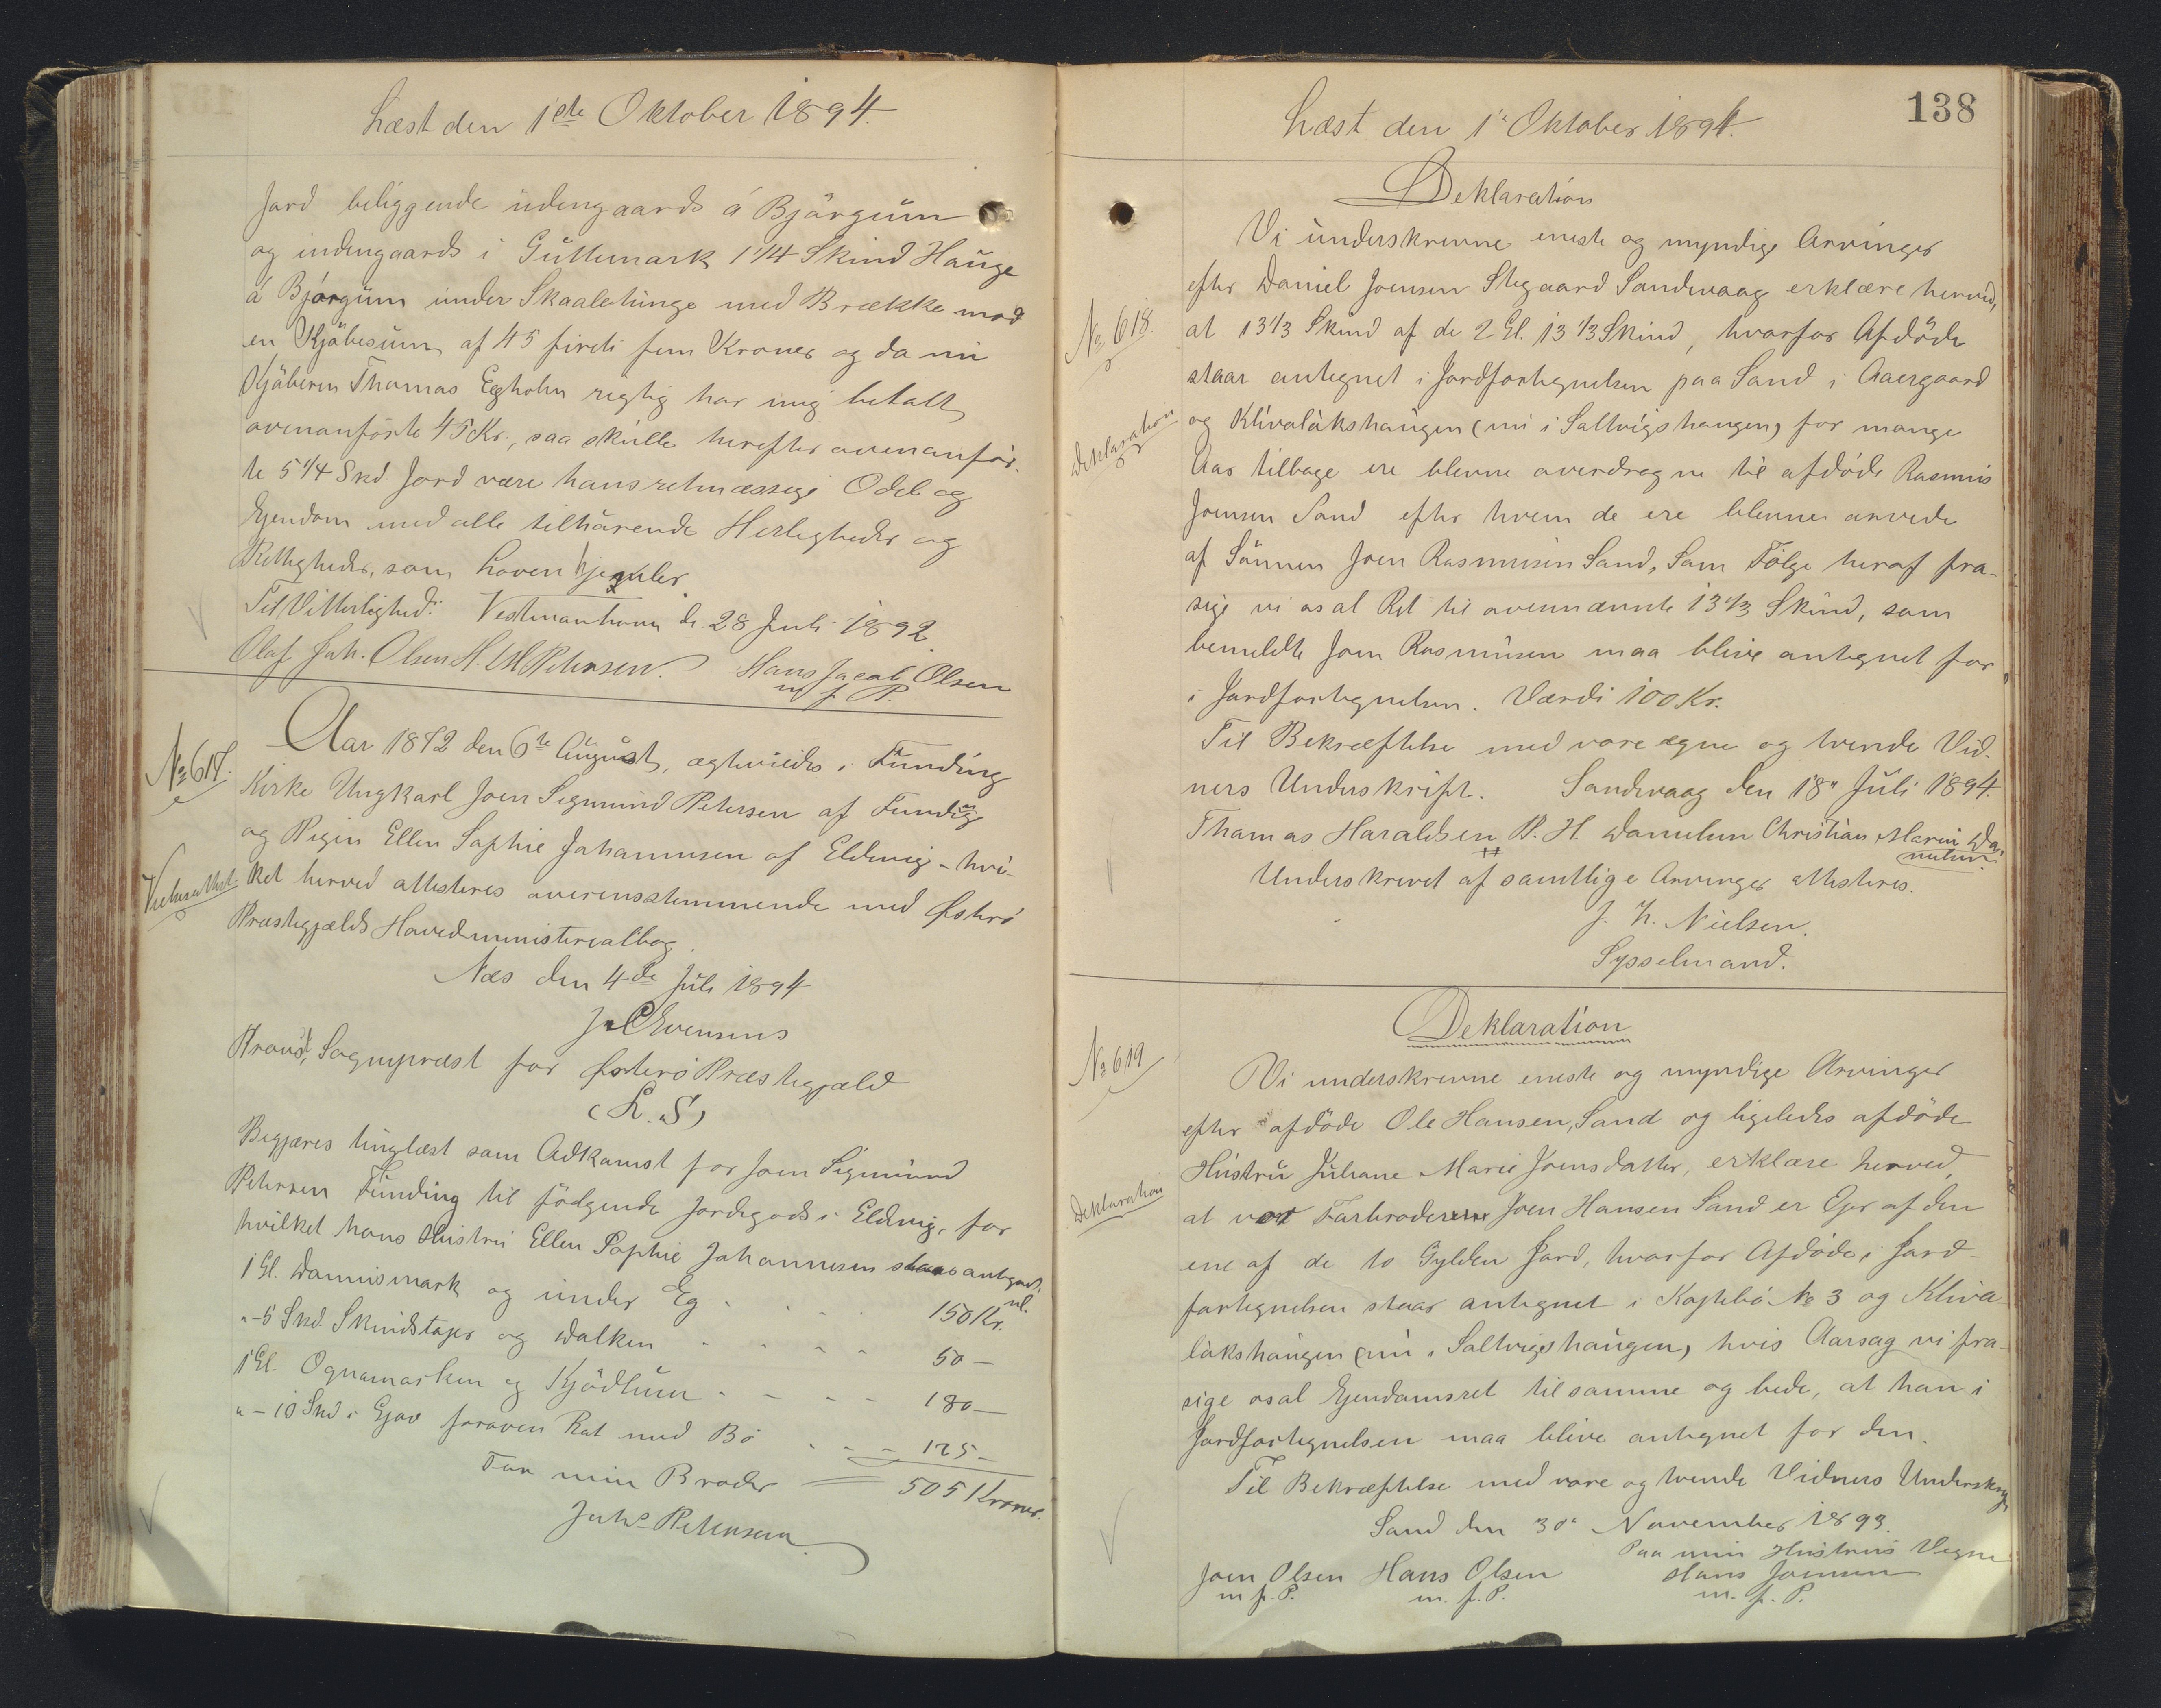 Læst den 1ste Oktober 1894.
Jord beliggende udengaards á Bjørgum
og indengaards i Guttemark 1 1/4 Skind Hauge
á Bjørgum under Skaaletunge med Brække mod
en Kjøbesum af 45 fireti fem Kroner og da nu
Kjøberen Thomas Egholm rigtig har mig betalt
ovenanførte 45 Kr., saa skulle herefter ovenanfør-
te 5 1/4 Snd. Jord være hans retmæssige Odel og
Ejendom med alle tilhørende Herligheder og
Rettigheder, som Loven hjemler.
Til Vitterlighed: Vestmanhavn d. 28 Juli 1892.
Olaf Joh. Olsen H. M Petersen. Hans Jacob Olsen
m. f. P.
№ 617.
Vielsesattest
Aar 1872 den 6te August, ægteviedes i Funding
Kirke Ungkarl Joen Sigmund Petersen af Funding
og Pigen Ellen Sophie Johannesen af Eldevig - hvil-
ket herved attesteres overensstemmende med Østerø
Præstegjælds Hovedministerialbog.
Næs den 4de Juli 1894
J. Evensens
Provst, Sognepræst for Østerø Præstegjæld
(L. S)
Begjæres tinglæst som Adkomst for Joen Sigmund
Petersen Funding til følgende Jordegods i Eldevig, for
hvilket hans Hustru Ellen Sophie Johannesen staar antegnet,
nl.
1 Gl. Dannismark og under Eg - - - - 150 Kr.
"-5 Snd. Skindstajer og Dalken - - - - 50 —
1 Gl. Ognamarken og Kjødlum - - - - 180 —
"-10 Snd i Gjov foroven Rat med Bø - - - 125 —
505 Kroner.
For min Broder
Johs Petersen
138
Læst den 1" Oktober 1894.
Deklaration
№ 618.
Deklaration
Vi underskrevne eneste og myndige Arvinger
efter Daniel Joensen Stegaard Sandevaag erklære herved,
at 13 1/3 Skind af de 2 Gl. 13 1/3 Skind, hvorfor Afdøde
staar antegnet i Jordfortegnelsen paa Sand i Aaergaard
og Klivalákshaugen (nu i Saltvigshaugen) for mange
Aar tilbage ere blevne overdragne til afdøde Rasmus
Joensen Sand efter hvem de ere blevne arvede
af Sønnen Joen Rasmusen Sand. Som Følge heraf fra-
sige vi os al Ret til ovennævnte 13 1/3 Skind, som
bemeldte Joen Rasmusen maa blive antegnet for
i Jordfortegnelsen. Værdi 100 Kr.
Til Bekræftelse med vore egne og tvende Vid-
ners Underskrift. Sandevaag den 18" Juli 1894.
Thomas Haraldsen P. H. Danielsen Christian Marin Da-
nielsen.
Underskrevet af samtlige Arvinger attesteres.
J. H. Nielsen.
Sysselmand.
Deklaration
№ 619
Deklaration
Vi underskrevne eneste og myndige Arvinger
efter afdøde Ole Hansen, Sand og ligeledes afdøde
Hustru Juliane Marie Joensdatter, erklære herved,
at vor Farbroder Joen Hansen Sand er Ejer af den
ene af de to Gylden Jord, hvorfor Afdøde i Jord-
fortegnelsen staar antegnet i Kojtebø № 3 og Kliva-
lákshaugen (nu i Saltvigshaugen) hvis Aarsag vi fra-
sige os al Ejendomsret til samme og bede, at han i
Jordfortegnelsen maa blive antegnet for den.
Til Bekræftelse med vore og tvende Vidners Underskrift
Sand den 30" November 1893.
Paa min Hustrus Vegne
Joen Olsen Hans Olsen Hans Joensen
m. f. P. m. f. P. m. f. P.